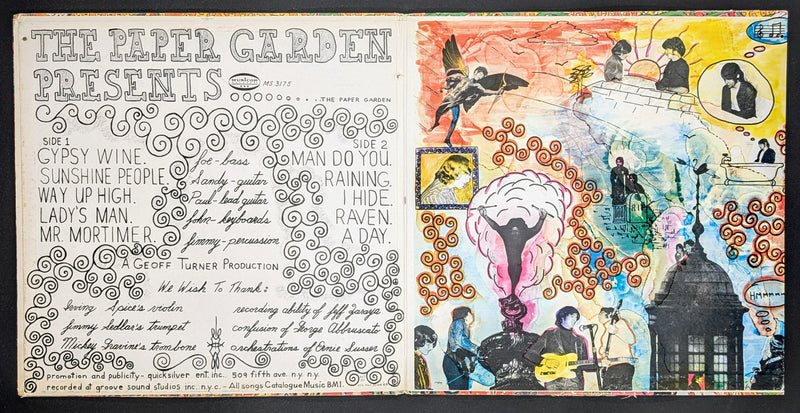 THE PAPER GARDEN
PRESENTS
MUSICOR
MS 3175
...THE PAPER GARDEN
SIDE 1
GYPSY WINE.
SUNSHINE PEOPLE.
WAY UP HIGH.
LADY'S MAN.
MR. MORTIMER.
Joe-bass
Sandy-guitar
Paul-lead guitar
John-keyboards
Jimmy-percussion
SIDE 2
MAN DO YOU.
RAINING.
I HIDE.
RAVEN.
A DAY.
A GEOFF TURNER PRODUCTION
We Wish To Thank:
Irving Spice's violin
Jimmy Sedlar's trumpet
Mickey Gravine's trombone
recording ability of Jeff Zaraya
confusion of George Abbruscat
orchestrations of Ernie Susser
promotion and publicity-quicksilver ent. inc. 509 fifth ave. n.y. n.y.
recorded at groove sound studios inc. n.y.c. - All songs Catalogue Music BMI.
HMMMMM